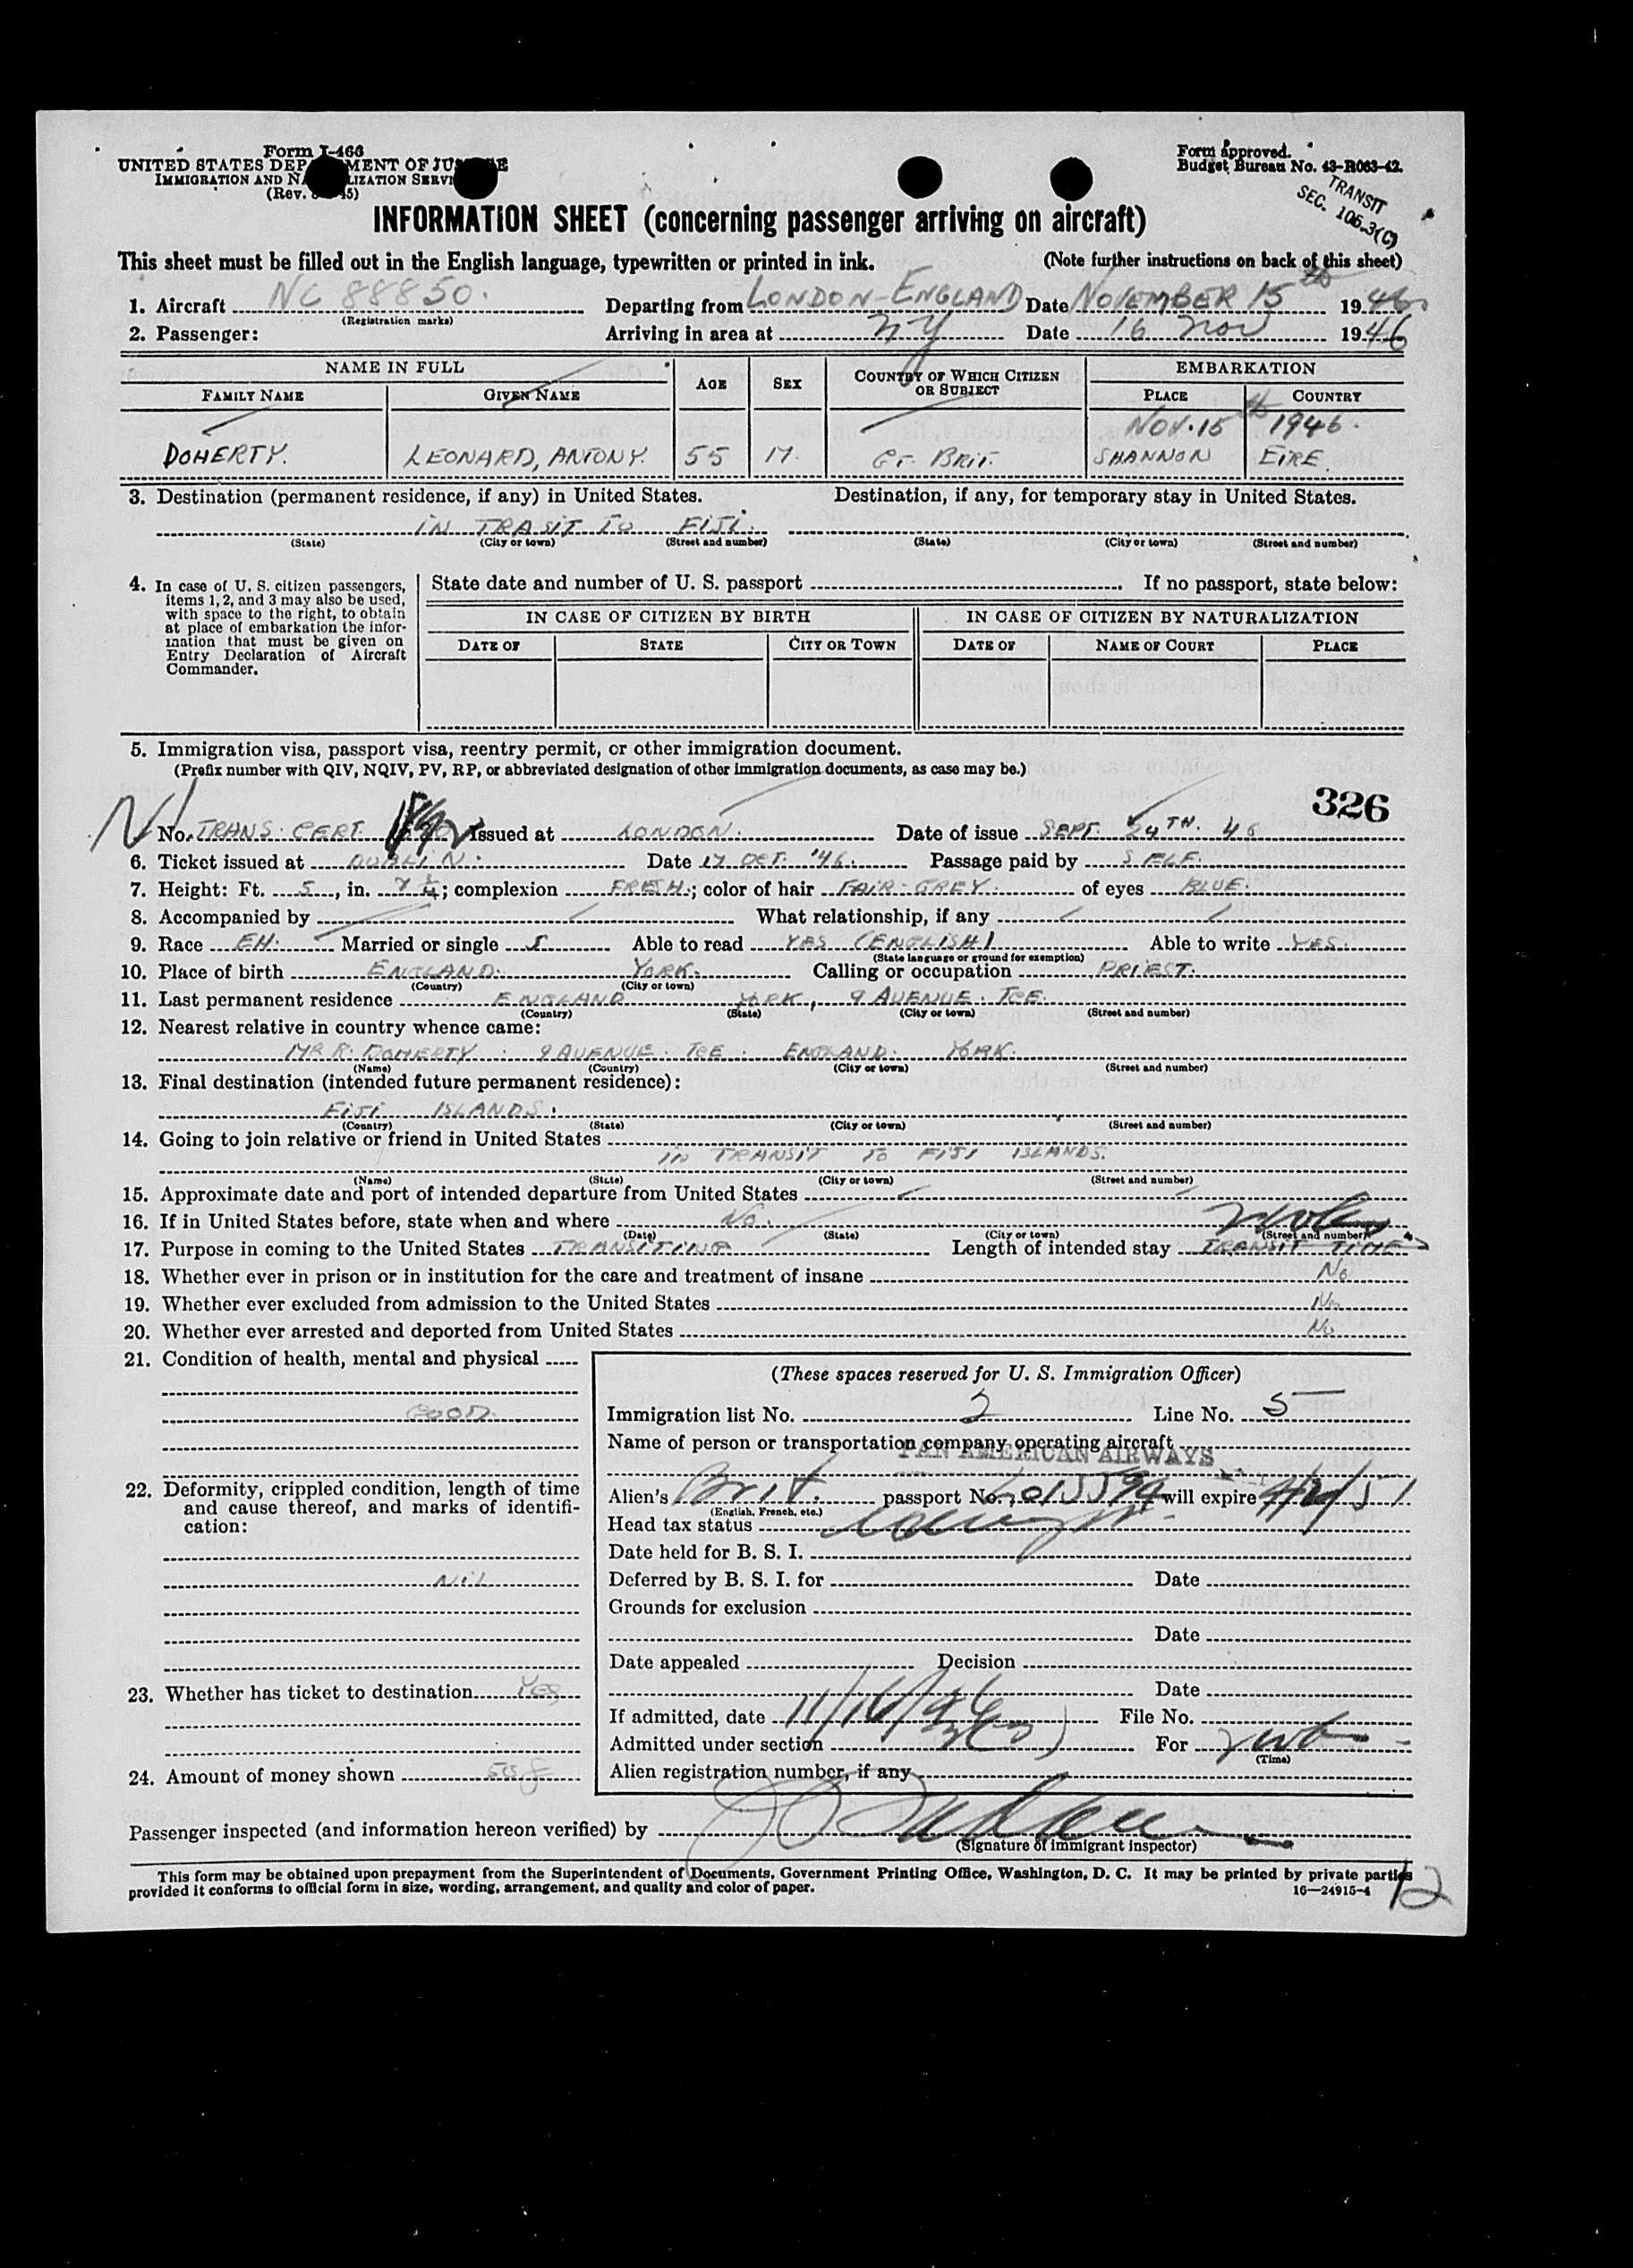 Form I-466
UNITED STATES DEP MENT OF JUS E
IMMIGRATION AND NA LIZATION SERVI
(Rev. 45)
Form approved.
Budget Bureau No. 43-R063-42.
TRANSIT
SEC. 105.3(C)
INFORMATION SHEET (concerning passenger arriving on aircraft)
This sheet must be filled out in the English language, typewritten or printed in ink. (Note further instructions on back of this sheet)
1. Aircraft NC 88850. Departing from LONDON-ENGLAND Date NOVEMBER 15th 1946
(Registration marks)
2. Passenger: Arriving in area at NY Date 16 Nov 1946
NAME IN FULL AGE SEX COUNTRY OF WHICH CITIZEN OR SUBJECT EMBARKATION
FAMILY NAME GIVEN NAME PLACE COUNTRY
NOV. 15th 1946.
DOHERTY. LEONARD, ANTONY. 55 M. GT. BRIT. SHANNON EIRE.
3. Destination (permanent residence, if any) in United States. Destination, if any, for temporary stay in United States.
IN TRASIT TO FIJI.
(State) (City or town) (Street and number) (State) (City or town) (Street and number)
4. In case of U. S. citizen passengers, items 1, 2, and 3 may also be used, with space to the right, to obtain at place of embarkation the information that must be given on Entry Declaration of Aircraft Commander.
State date and number of U. S. passport If no passport, state below:
IN CASE OF CITIZEN BY BIRTH IN CASE OF CITIZEN BY NATURALIZATION
DATE OF STATE CITY OR TOWN DATE OF NAME OF COURT PLACE
5. Immigration visa, passport visa, reentry permit, or other immigration document.
(Prefix number with QIV, NQIV, PV, RP, or abbreviated designation of other immigration documents, as case may be.)
326
No. TRANS. CERT. Issued at LONDON. Date of issue SEPT. 24TH. 46
6. Ticket issued at DUBLIN. Date 17 OCT. '46. Passage paid by SELF.
7. Height: Ft. 5, in. 7 1/4; complexion FRESH.; color of hair FAIR-GREY. of eyes BLUE.
8. Accompanied by What relationship, if any
9. Race EH. Married or single S Able to read YES (ENGLISH) Able to write YES.
(State language or ground for exemption)
10. Place of birth ENGLAND. YORK. Calling or occupation PRIEST.
(Country) (City or town)
11. Last permanent residence ENGLAND YORK, 9 AVENUE. TCE.
(Country) (State) (City or town) (Street and number)
12. Nearest relative in country whence came:
MR R. DOHERTY. 9 AVENUE. TCE. ENGLAND. YORK.
(Name) (Country) (City or town) (Street and number)
13. Final destination (intended future permanent residence):
FIJI ISLANDS.
(Country) (State) (City or town) (Street and number)
14. Going to join relative or friend in United States
IN TRANSIT TO FIJI ISLANDS.
(Name) (State) (City or town) (Street and number)
15. Approximate date and port of intended departure from United States
16. If in United States before, state when and where No.
(Date) (State) (City or town) (Street and number)
17. Purpose in coming to the United States TRANSITING Length of intended stay TRANSIT TIME
18. Whether ever in prison or in institution for the care and treatment of insane No
19. Whether ever excluded from admission to the United States No
20. Whether ever arrested and deported from United States No
21. Condition of health, mental and physical
GOOD.
22. Deformity, crippled condition, length of time and cause thereof, and marks of identification:
NIL
23. Whether has ticket to destination YES
24. Amount of money shown
(These spaces reserved for U. S. Immigration Officer)
Immigration list No. 2 Line No. 5
Name of person or transportation company operating aircraft
PAN AMERICAN AIRWAYS
Alien's Brit. passport No. will expire
(English, French, etc.)
Head tax status
Date held for B. S. I.
Deferred by B. S. I. for Date
Grounds for exclusion
Date
Date appealed Decision
Date
If admitted, date 11/16/46 File No.
Admitted under section For
(Time)
Alien registration number, if any
Passenger inspected (and information hereon verified) by
(Signature of immigrant inspector)
This form may be obtained upon prepayment from the Superintendent of Documents, Government Printing Office, Washington, D. C. It may be printed by private parties
provided it conforms to official form in size, wording, arrangement, and quality and color of paper. 16—24915-4
12